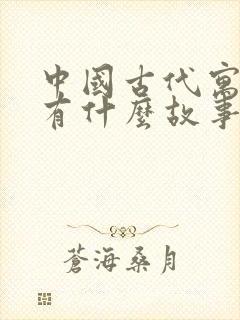 中國古代寓
有什麼故事
蒼海桑月